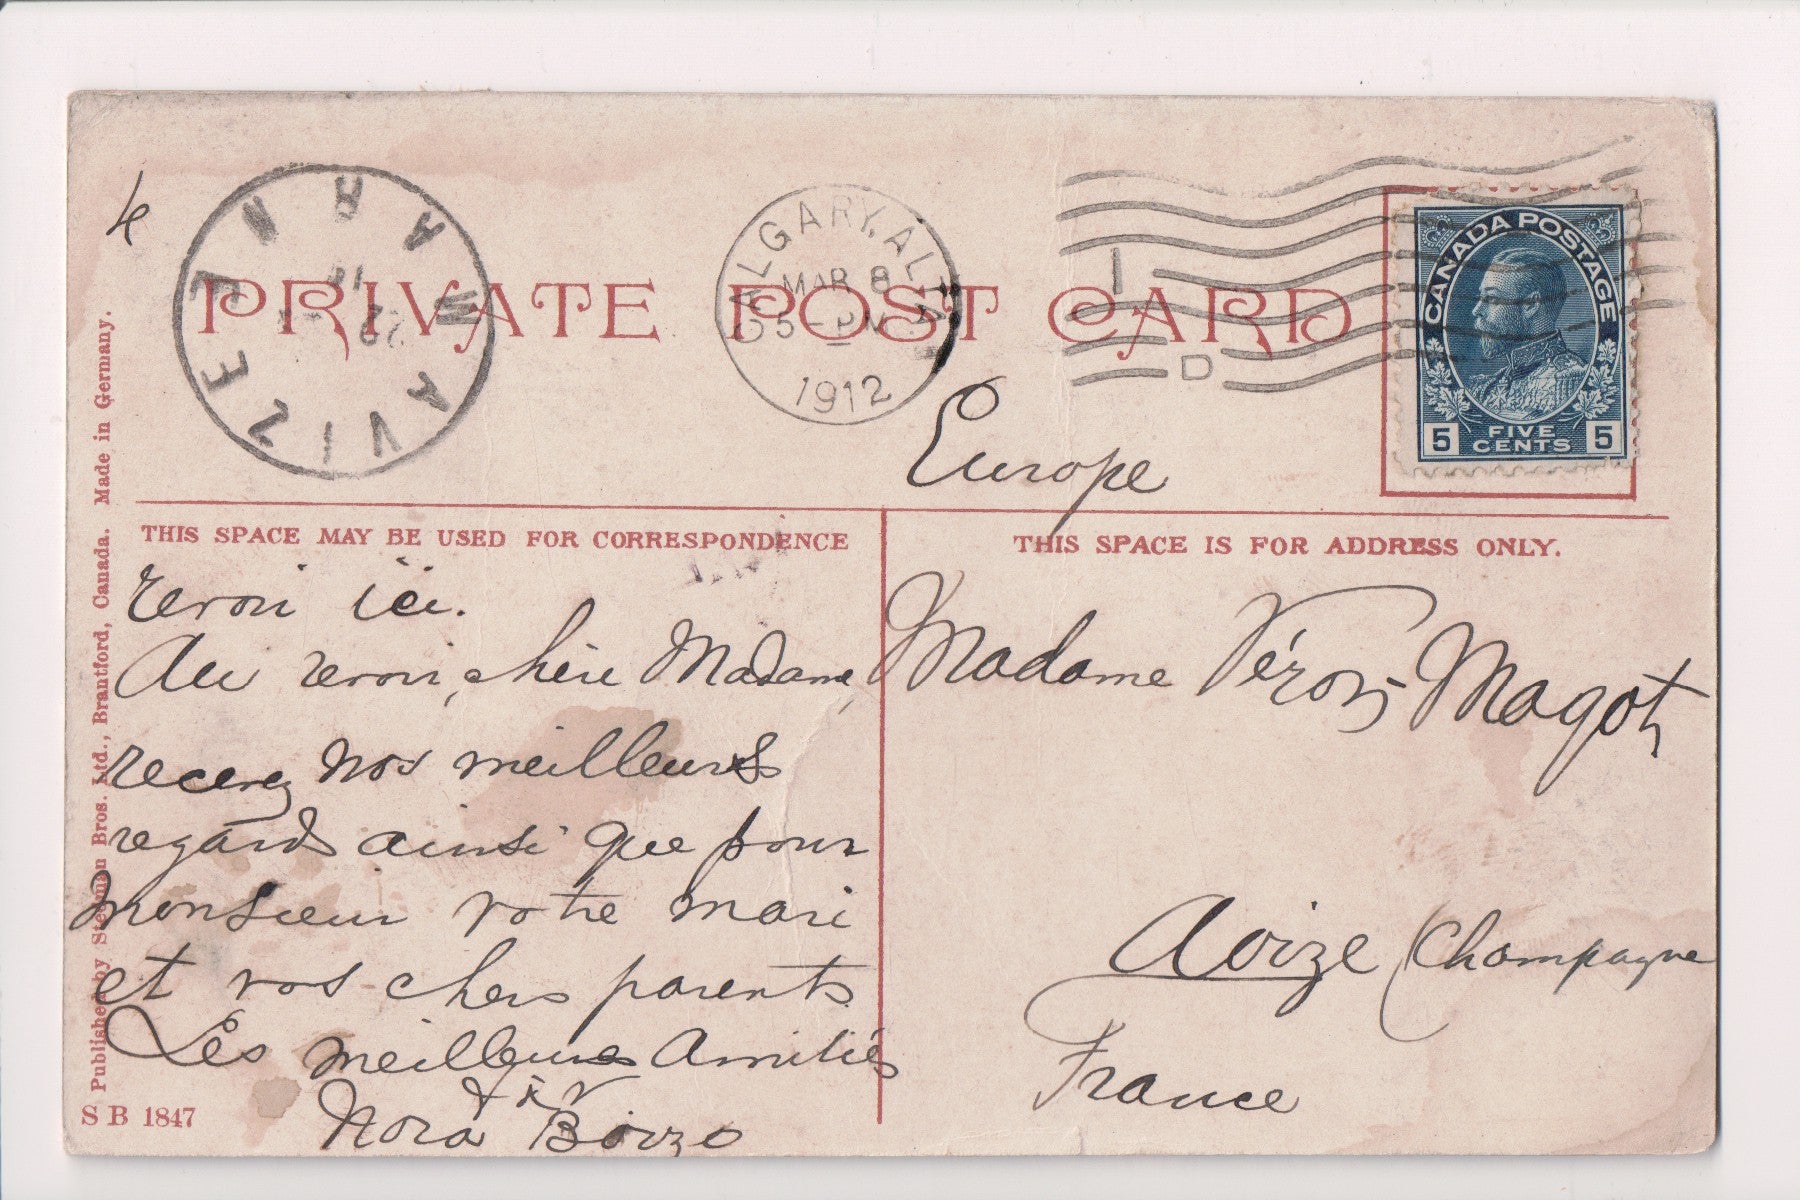 PRIVATE POST CARD
CALGARY, ALTA
MAR 8
5 - PM
1912
AVIZE
MARNE
CANADA POSTAGE
5 FIVE CENTS 5
4
Europe
THIS SPACE MAY BE USED FOR CORRESPONDENCE
revoir ici.
Au revoir, chère Madame,
recevez nos meilleurs
regards ainsi que pour
monsieur votre mari
et vos chers parents
Les meilleures Amitiés
Nora
THIS SPACE IS FOR ADDRESS ONLY.
Madame Magot
Avize (Champagne
France
Published by Stedman Bros. Ltd., Brantford, Canada. Made in Germany.
S B 1847